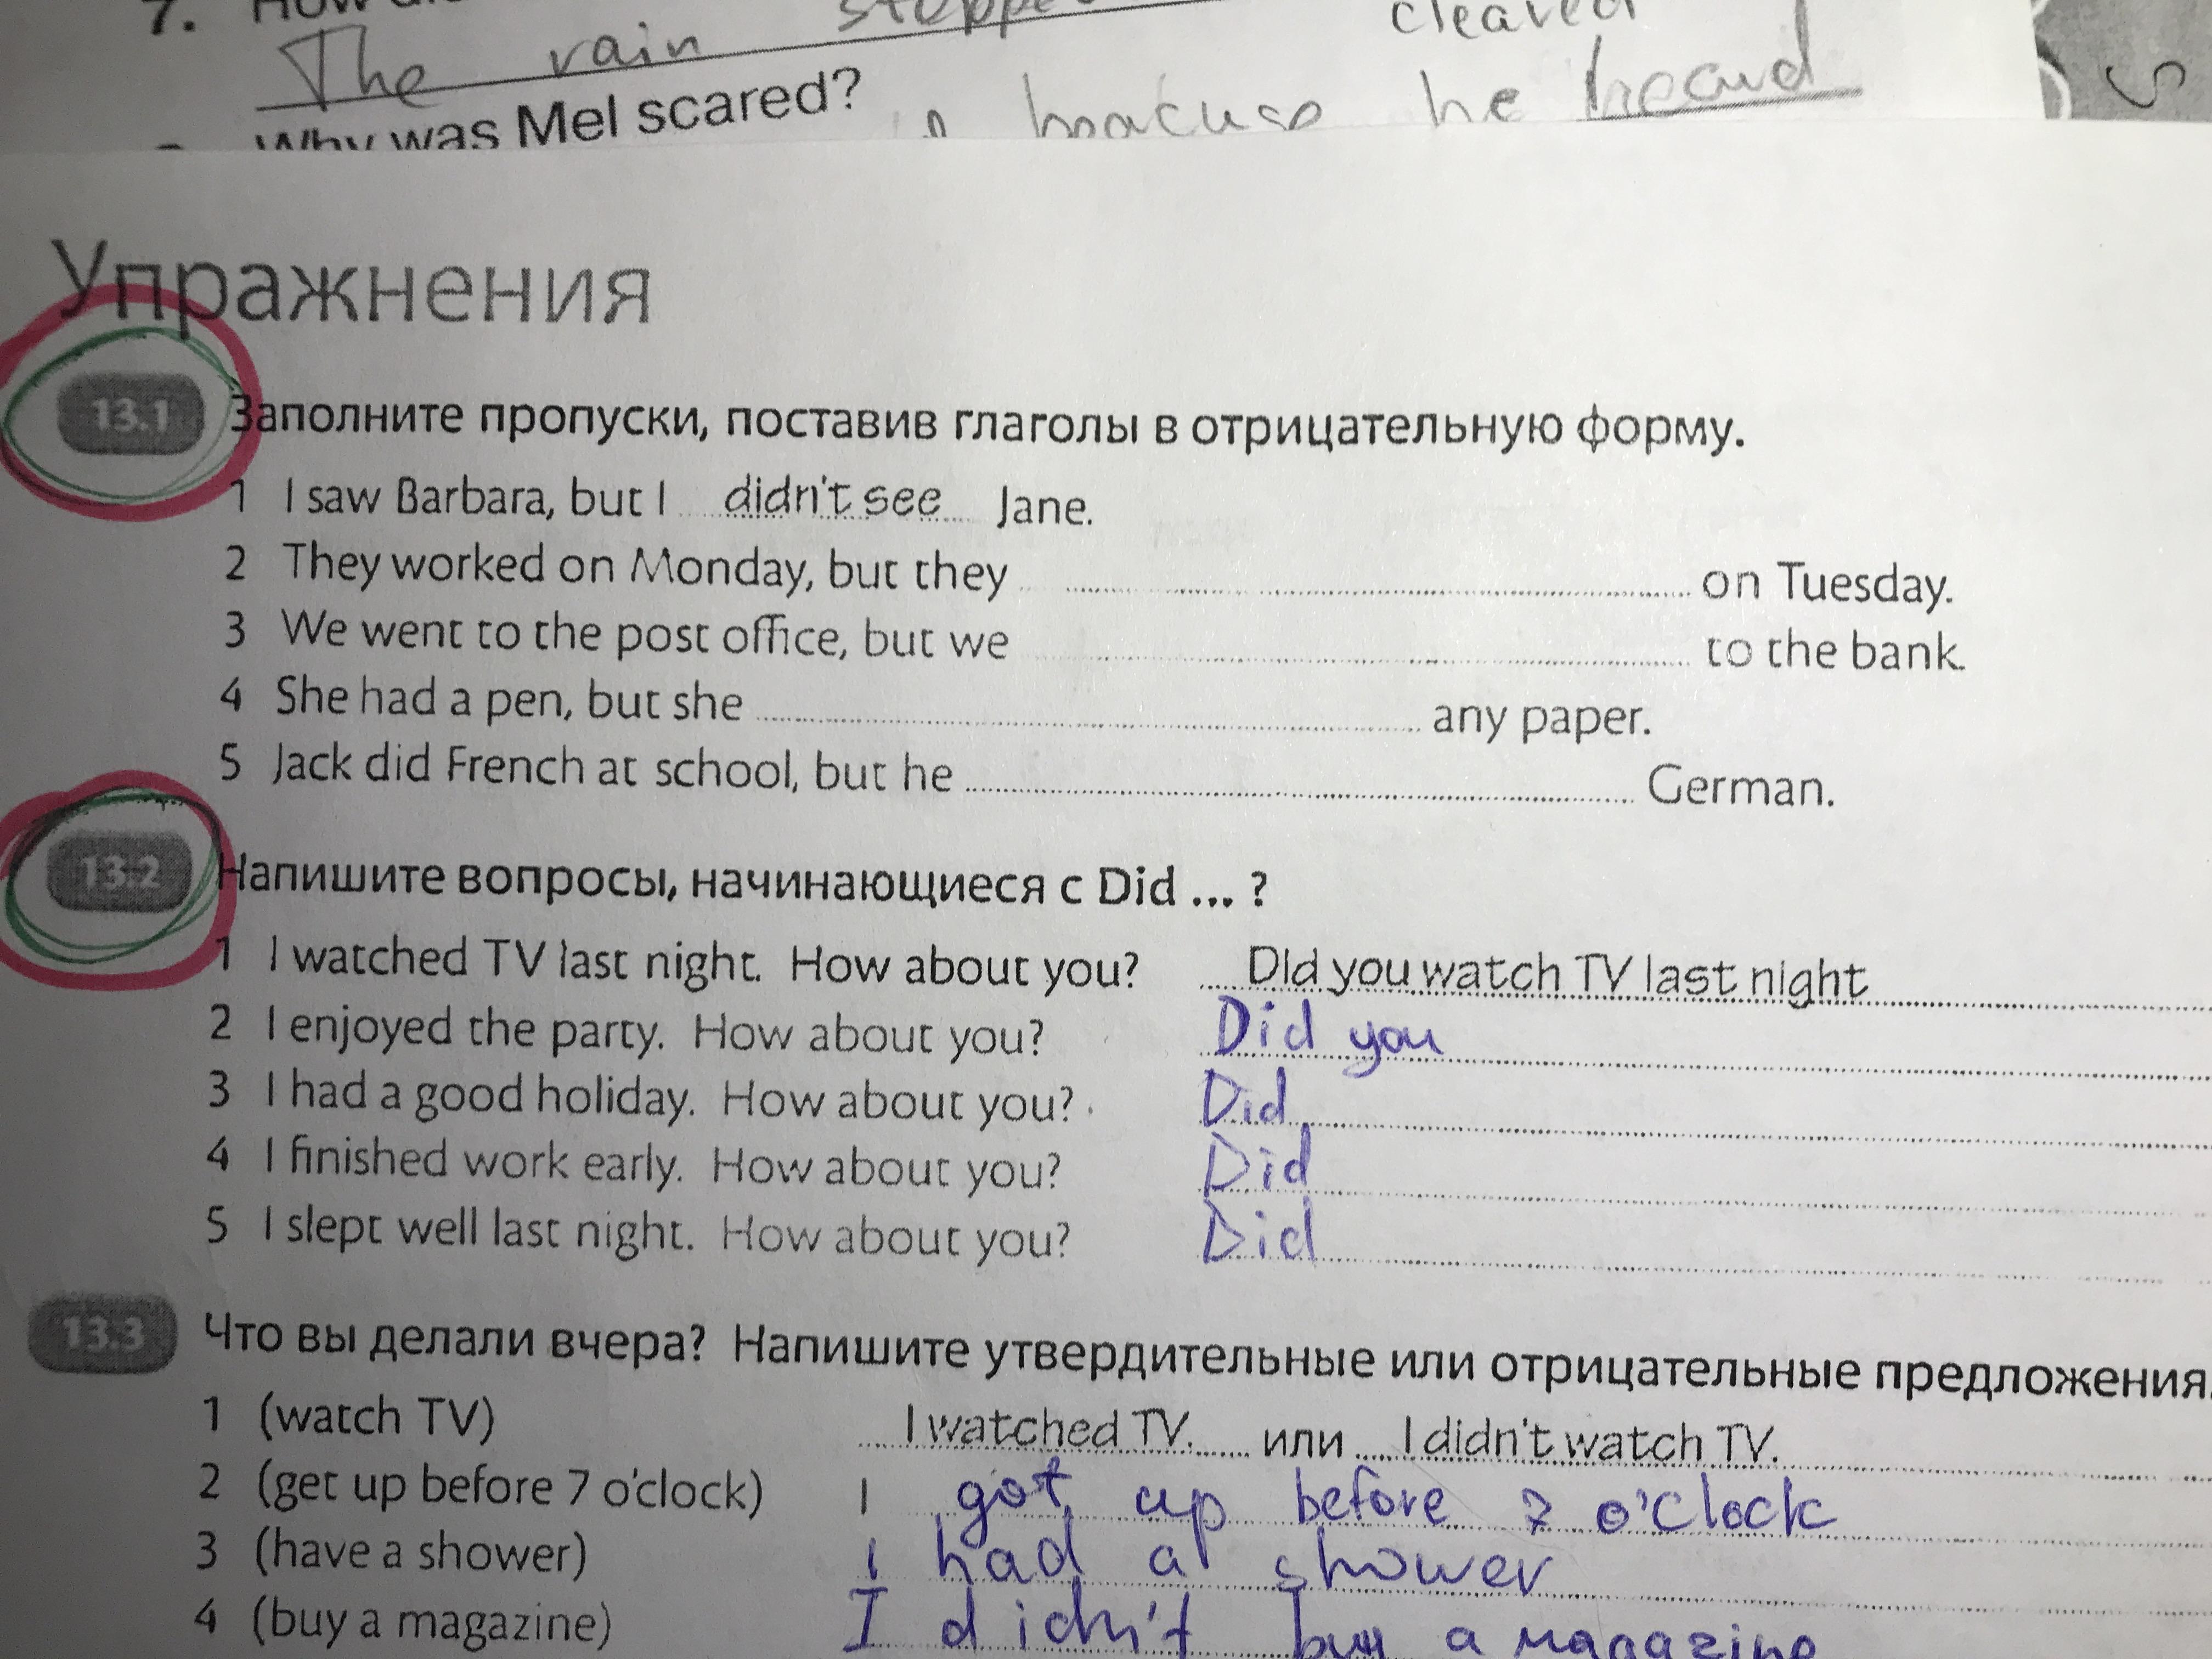 7. How di
The rain stopped cleared
Why was Mel scared?
he heard
Упражнения
13.1 Заполните пропуски, поставив глаголы в отрицательную форму.
1 I saw Barbara, but I didn't see Jane.
2 They worked on Monday, but they on Tuesday.
3 We went to the post office, but we to the bank.
4 She had a pen, but she any paper.
5 Jack did French at school, but he German.
13.2 Напишите вопросы, начинающиеся с Did ... ?
1 I watched TV last night. How about you? Did you watch TV last night
2 I enjoyed the party. How about you? Did you
3 I had a good holiday. How about you? Did
4 I finished work early. How about you? Did
5 I slept well last night. How about you? Did
13.3 Что вы делали вчера? Напишите утвердительные или отрицательные предложения.
1 (watch TV) I watched TV. или I didn't watch TV.
2 (get up before 7 o'clock) I got up before 7 o'clock
3 (have a shower) I had a shower
4 (buy a magazine) I didn't buy a magazine